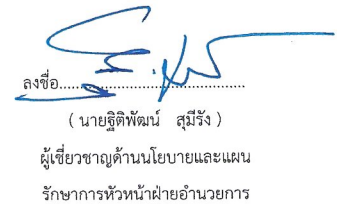 ลงชื่อ................................................
( นายฐิติพัฒน์ สุมีรัง )
ผู้เชี่ยวชาญด้านนโยบายและแผน
รักษาการหัวหน้าฝ่ายอำนวยการ